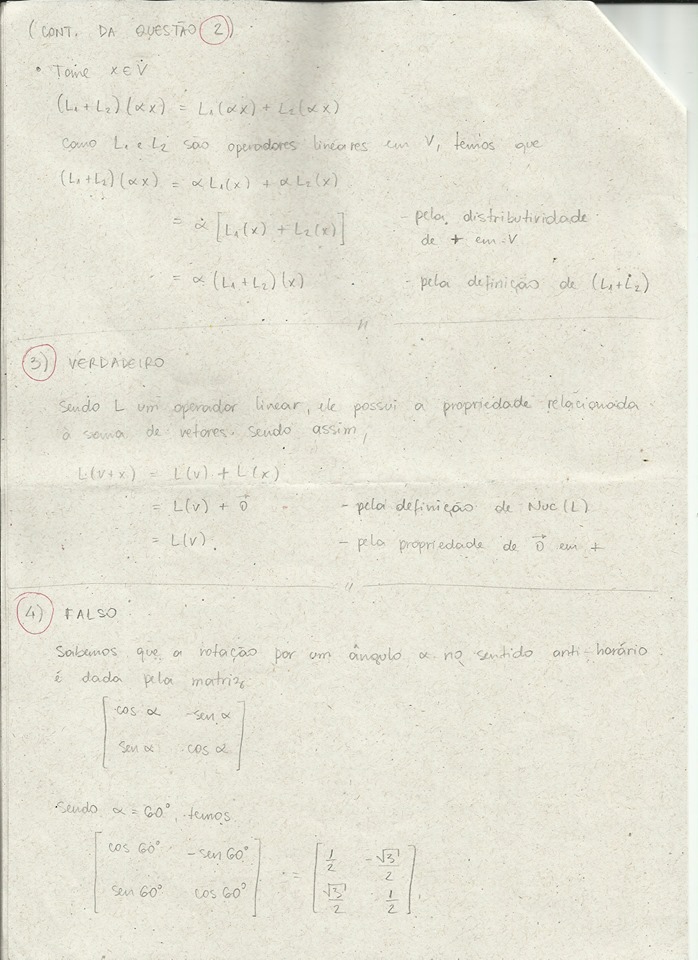 (CONT. DA QUESTÃO 2)
• Tome x ∈ V
(L₁+L₂)(αx) = L₁(αx) + L₂(αx)
como L₁ e L₂ são operadores lineares em V, temos que
(L₁+L₂)(αx) = αL₁(x) + αL₂(x)
= α[L₁(x) + L₂(x)] - pela distributividade
de + em V
= α(L₁+L₂)(x) - pela definição de (L₁+L₂)
//
3) VERDADEIRO
Sendo L um operador linear, ele possui a propriedade relacionada
à soma de vetores. Sendo assim,
L(v+x) = L(v) + L(x)
= L(v) + 0⃗ - pela definição de Nuc(L)
= L(v) - pela propriedade de 0⃗ em +
//
4) FALSO
Sabemos que a rotação por um ângulo α no sentido anti-horário
é dada pela matriz
[cos α -sen α
sen α cos α]
Sendo α = 60°, temos
[cos 60° -sen 60° = [1/2 -√3/2
sen 60° cos 60°] √3/2 1/2]